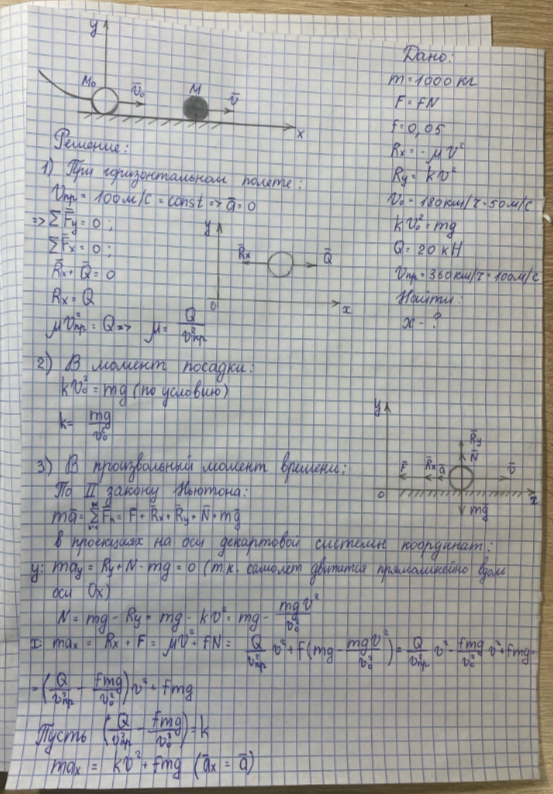 y
M₀
v̄₀
M
v̄
x
Дано:
m = 1000 кг
F = fN
f = 0,05
Rx = -μv²
Ry = kv²
v₀ = 180км/ч = 50м/с
kv₀² = mg
Q = 20 кН
vпр = 360км/ч = 100м/с
Найти:
x - ?
Решение:
1) При горизонтальном полете:
vпр = 100м/с = const => ā = 0
=> ΣF̄y = 0;
ΣF̄x = 0;
R̄x + Q̄ = 0
Rx = Q
μv²пр = Q => μ = Q/v²пр
y
R̄x
Q̄
0
x
2) В момент посадки:
kv₀² = mg (по условию)
k = mg/v₀²
y
R̄y
N̄
F̄
R̄x
ā
v̄
mḡ
0
x
3) В произвольный момент времени:
По II закону Ньютона:
mā = ΣF̄к = F̄ + R̄x + R̄y + N̄ + mḡ
в проекциях на оси декартовой системы координат:
y: may = Ry + N - mg = 0 (т.к. самолет движется прямолинейно вдоль
оси Ox)
N = mg - Ry = mg - kv² = mg - mgv²/v₀²
x: max = Rx + F = μv² + fN = Q/v²пр v² + f(mg - mgv²/v₀²) = Q/v²пр v² - fmg/v₀² v² + fmg =
= (Q/v²пр - fmg/v₀²)v² + fmg
Пусть (Q/v²пр - fmg/v₀²) = k
max = kv² + fmg (āx = ā)